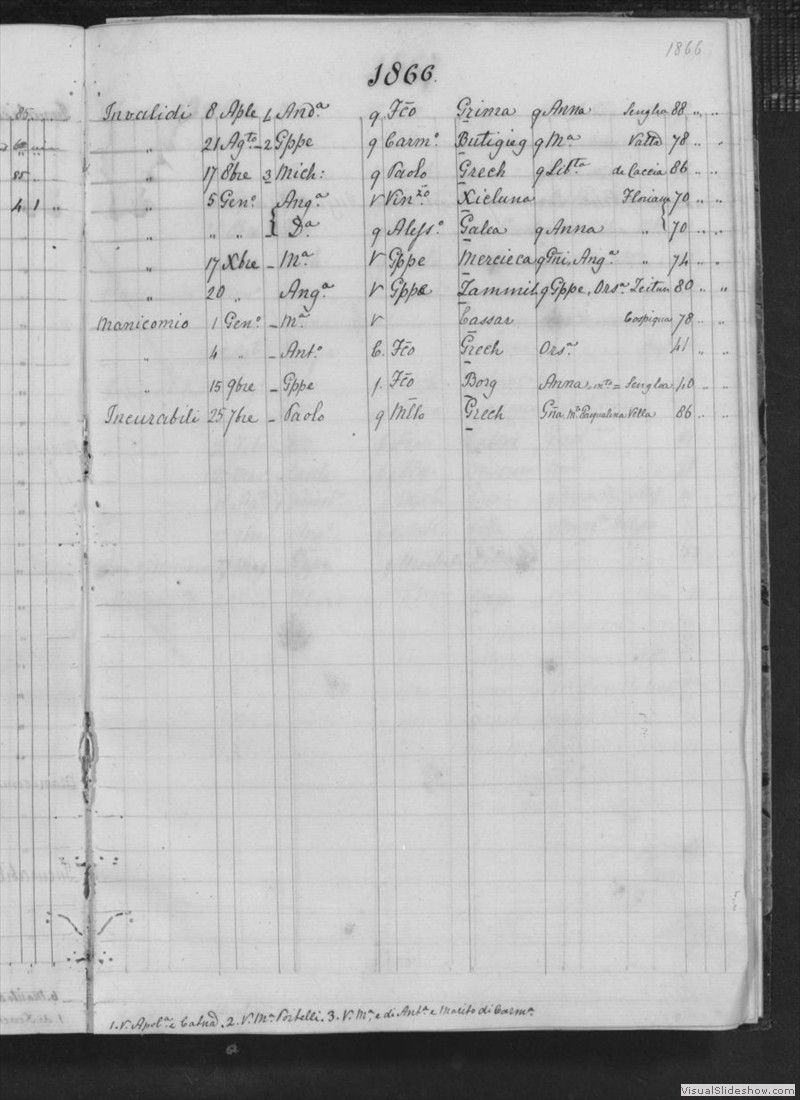 1866
1866.
Invalidi 8 Aple 1 And.ª q Fco Grima q Anna Senglea 88 " "
" 21 Agto - 2 Gppe q Carm.º Butigieg q Mª Vallª 78 " "
" 17 8bre 3 Mich: q Paolo Grech q Lib.ta de Caccia 86 " "
" 5 Gen.º Ang.ª V Vin.zo Xicluna Floriana 70 " "
" " " - Dª q Aless.º Galea q Anna " 70 " "
" 17 Xbre - Mª V Gppe Mercieca q Gni, Ang.ª 74 " "
" 20 " Ang.ª V Gppe Zammit q Gppe, Ors.ª Zeitun 80 " "
Manicomio 1 Gen.º - Mª V Cassar Cospiqua 78 " "
" 4 " - Ant.º C. Fco Grech Ors.ª 41 " "
" 15 9bre - Gppe f. Fco Borg Anna = Senglea 40 " "
Incurabili 25 7bre - Paolo q Mllo Grech Gña, Mª Pasqualina Vella 86 " "
1. V. Apol.ª e Catnª. 2. V. Mª Portelli. 3. V. Mª, e di Ant.ª e Marito di Carm.ª
VisualSlideshow.com